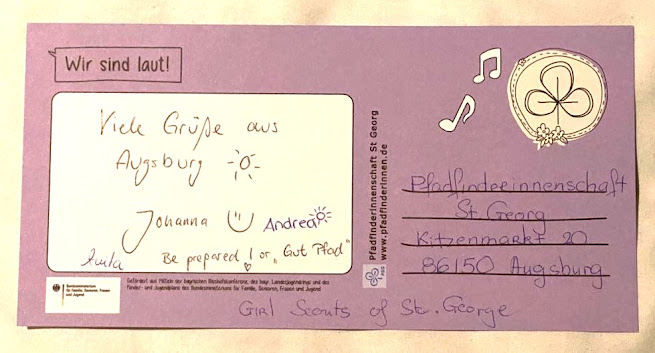 Wir sind laut!
Viele Grüße aus
Augsburg
Johanna
Andrea
Be prepared! or „Gut Pfad"
Bundesministerium
für Familie, Senioren, Frauen
und Jugend
Gefördert aus Mitteln der bayrischen Bischofskonferenz, des bayr. Landesjugendrings und des
Kinder- und Jugendplans des Bundesministeriums für Familie, Senioren, Frauen und Jugend
Pfadfinderinnenschaft St Georg
www.pfadfinderinnen.de
PSG
Pfadfinderinnenschaft
St. Georg
Kitzenmarkt 20
86150 Augsburg
Girl Scouts of St. George